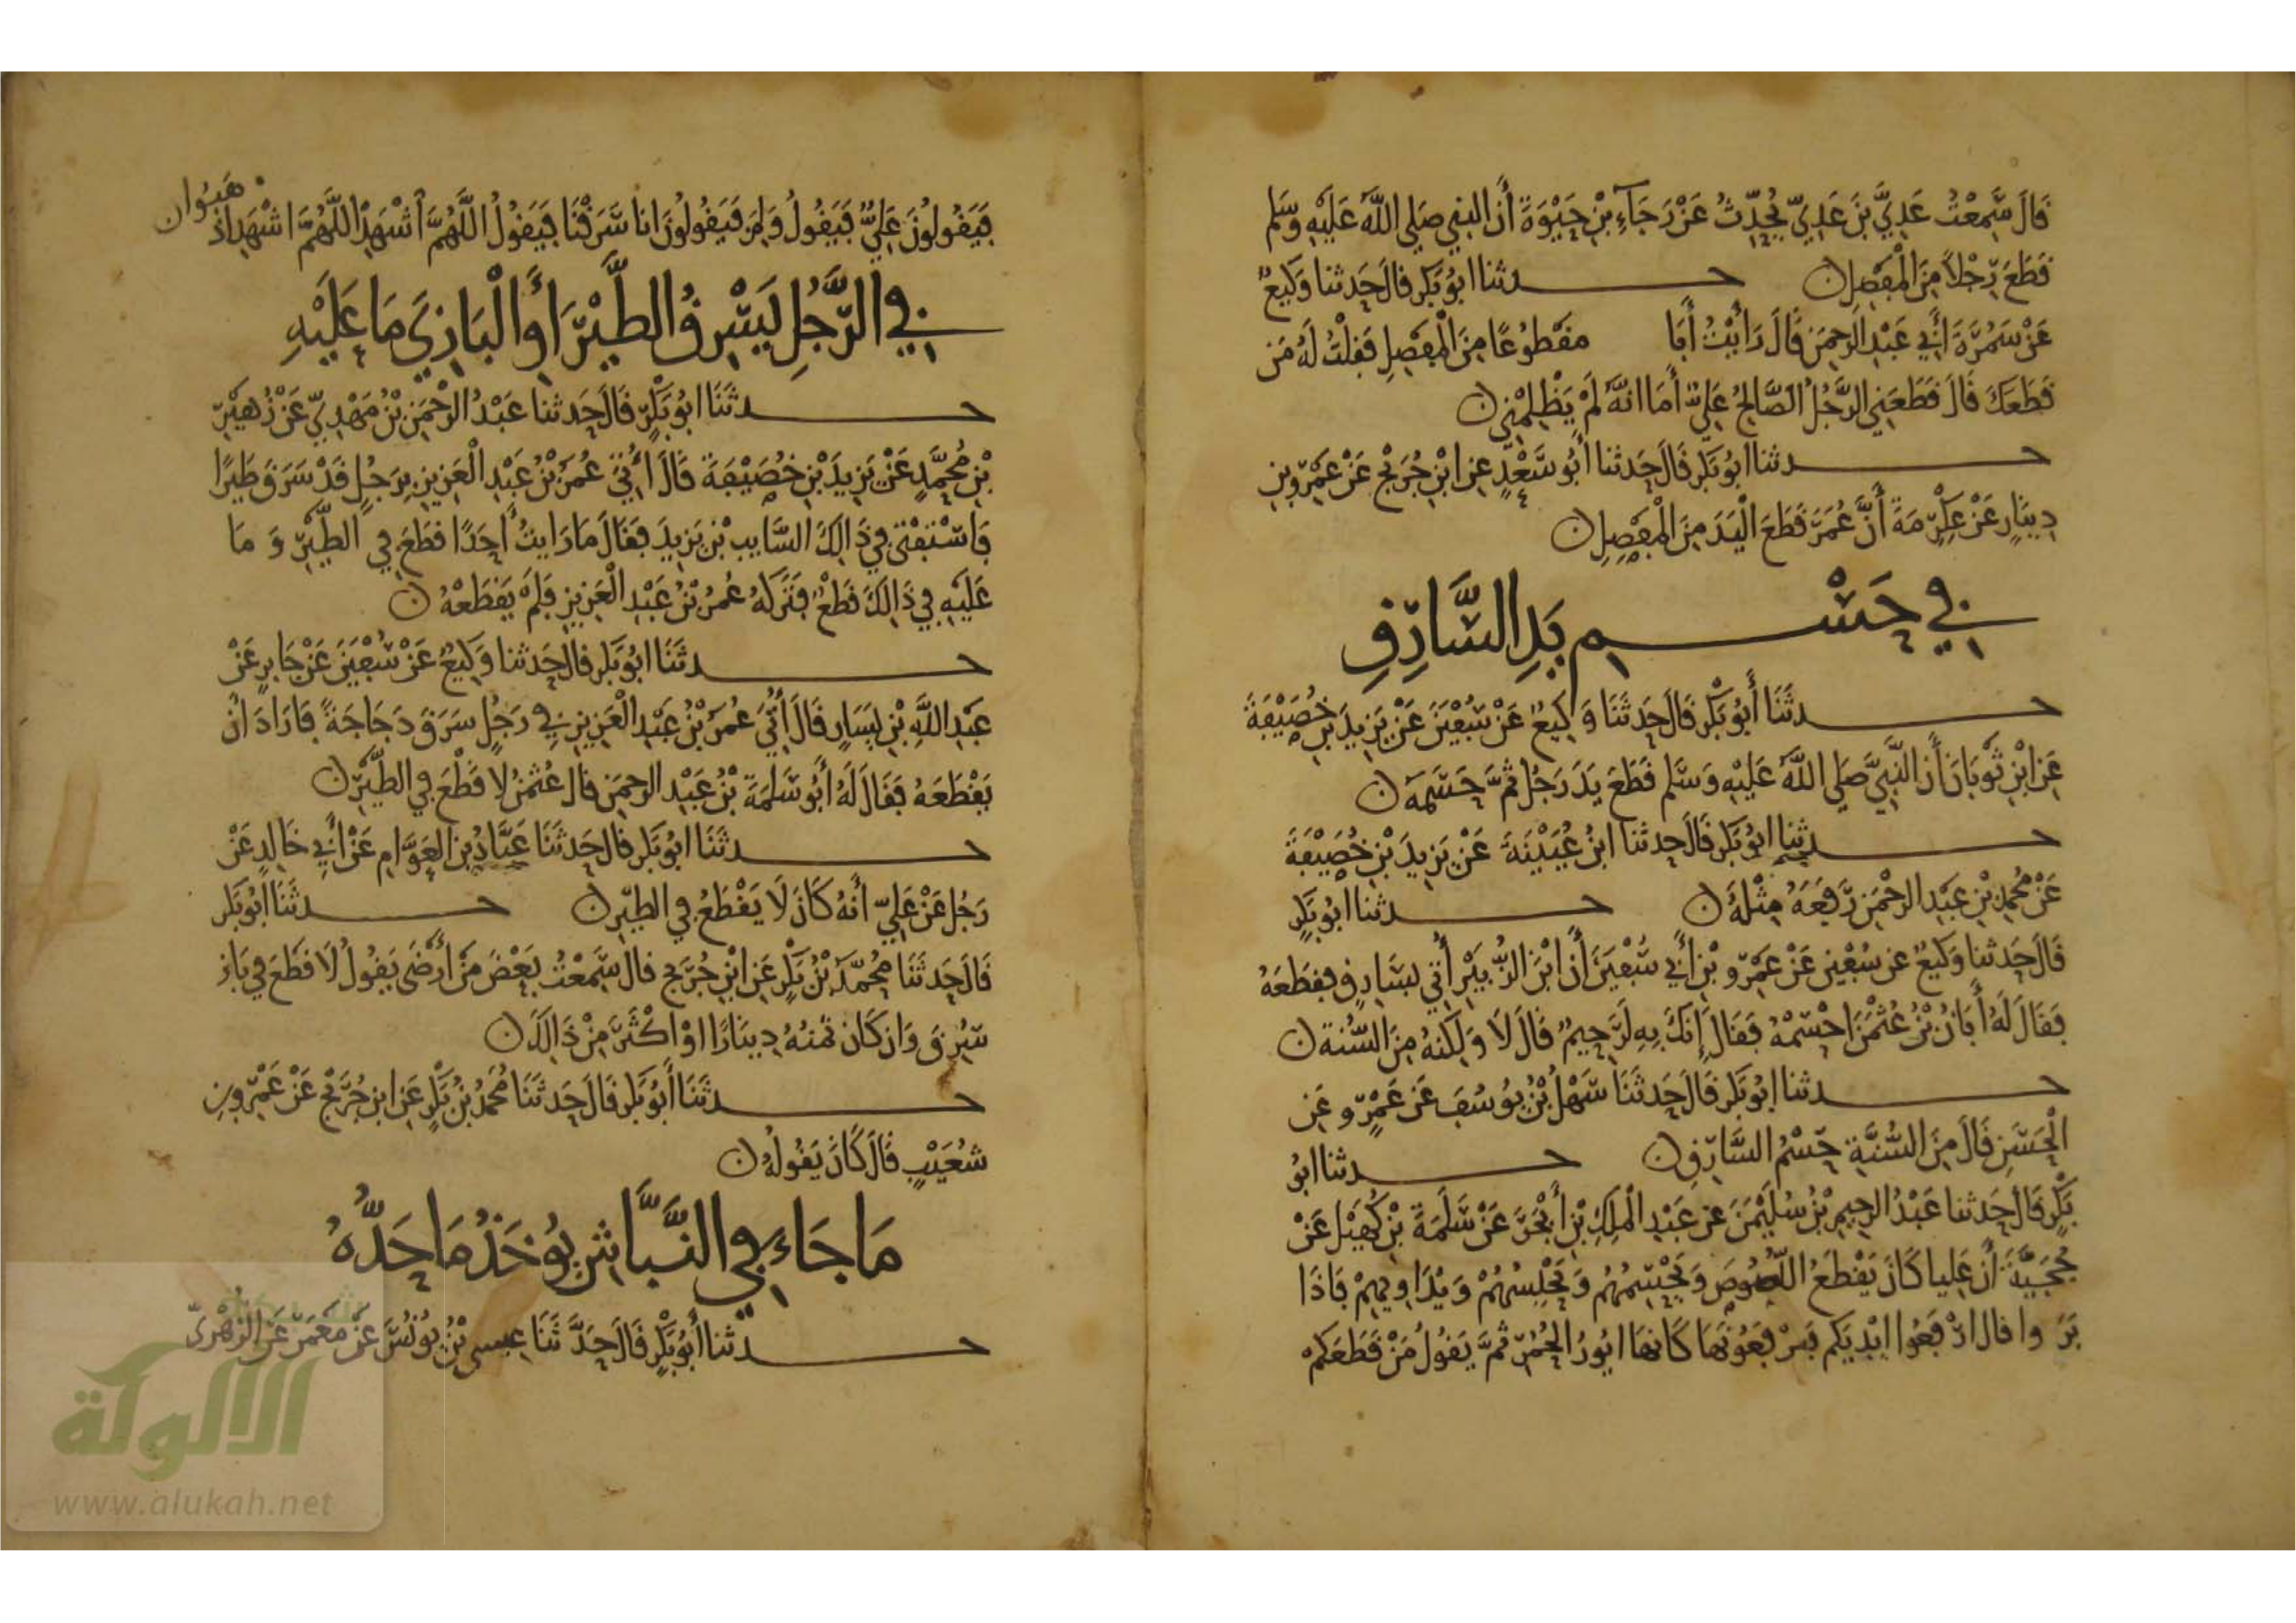 قَالَ سَمِعْتُ عَدِيَّ بْنَ عَدِيٍّ يُحَدِّثُ عَنْ رَجَاءِ بْنِ حَيْوَةَ أَنَّ النبي صَلى اللَّهُ عَلَيْهِ وَسَلم
قَطَعَ رِجْلًا مِنَ الْمَفْصِلِ ن حدثنا ابُو بَكر قالَ حَدثنا وَكِيعٌ
عَنْ سَمُرَةَ أَبِي عَبْدِ الرحمَنِ قَالَ رَأيْتُ أَبَا مَقْطُوعًا مِنَ الْمَفْصِلِ فَقلْتُ لَهُ مَن
قَطَعَكَ قَالَ قَطَعَنِي الرَّجُلُ الصَّالِحُ عَلِيٌّ أَمَا انَّهُ لَمْ يَظْلِمْنِي ن
حدثنا ابُو بَكر قَالَ حَدثنا أَبُو سَعْدٍ عن ابْنِ جُرَيْجٍ عَنْ عَمْرِو بنِ
دِينَارٍ عَنْ عِكْرِمَةَ أَنَّ عُمَرَ قَطَعَ الْيَدَ مِنَ الْمَفْصِلِ ن
في حَسْمِ يَدِ السَّارِقِ
حدثَنَا أَبُو بَكْر قَالَ حَدثَنَا وَكِيعٌ عَنْ سُفْيَنَ عَنْ يَزِيدَ بنِ خُصَيْفَةَ
عَنِ ابْنِ ثَوْبَانَ أَنَّ النَّبِيَّ صَلى اللَّهُ عَلَيْهِ وَسَلم قَطَعَ يَدَ رَجُلٍ ثُمَّ حَسَمَهُ ن
حدثنا ابُو بَكر قَالَ حدثنا ابْنُ عُيَيْنَةَ عَنْ يَزِيدَ بْنِ خُصَيْفَةَ
عَنْ مُحَمدِ بْنِ عَبْدِ الرحْمَنِ رَفَعَهُ مِثْلَهُ ن حدثنا ابُو بَكرٍ
قَالَ حَدثنا وَكيعٌ عن سُفْيَن عَنْ عَمْرِو بْنِ أَبِي سُفْيَنَ أَنَّ ابْنَ الزُّبَيْرِ أُتِيَ بسَارِقٍ فقطَعَهُ
فَقَالَ لَهُ أَبَانُ بْنُ عُثْمَنَ احْسِمْهُ فَقَالَ إِنَّكَ بِهِ لَرَحِيمٌ قَالَ لَا وَلَكِنهُ مِنَ السُّنة ن
حدثنا ابُو بَكر قَالَ حَدثَنَا سَهْلُ بْنُ يُوسُفَ عَن عَمْرٍو عَنِ
الْحَسَنِ قَالَ مِنَ السُّنَّةِ حَسْمُ السَّارِقِ ن حدثنا ابُو
بَكْرٍ قَالَ حَدثنا عَبْدُ الرحِيمِ بْنُ سُلَيْمَنَ عن عَبْدِ الْمَلِكِ بْنِ أَبْجَرَ عَنْ سَلَمَةَ بْنِ كُهَيْل عَنْ
حُجَيَّةَ أَنَّ عَلِيا كَانَ يَقْطَعُ اللُّصُوصَ وَيَحْسِمُهُمْ وَيَحْبِسُهُمْ وَيُدَاوِيهِمْ فَاذَا
بَرَوا قال ارْفَعُوا ايْدِيَكم فَيَرْفَعُونَهَا كَانهَا ايُورُ الْحُمُرِ ثُمَّ يَقُولُ مَنْ قَطَعَكم
فَيَقُولُونَ عَلِيٌّ فَيَقُولُ وَلِمَ فَيَقُولُونَ انا سَرَقْنَا فَيَقُولُ اللَّهُمَّ اشْهَدْ اللَّهُمَّ اشْهَد اذْهَبُوا ن
فِي الرَّجُلِ يَسْرِقُ الطَّيْرَ أَوِ الْبَازِيَ مَا عَلَيْهِ
حدثَنَا ابُو بَكْرٍ قَالَ حَدثنا عَبْدُ الرَّحْمَنِ بْنُ مَهْدِيٍّ عَنْ زُهَيْرِ
بْنِ مُحَمَّدٍ عَنْ يَزِيدَ بْنِ خُصَيْفَةَ قَالَ أُتِيَ عُمَرُ بْنُ عَبْدِ الْعَزِيزِ بِرَجُلٍ قَدْ سَرَقَ طَيْرًا
فَاسْتَفْتَى فِي ذَالِكَ السَّايِبَ بْنَ يَزِيدَ فَقَالَ مَا رَايتُ أَحَدًا قطَعَ فِي الطَّيْرِ وَمَا
عَلَيْهِ فِي ذَالِكَ قَطْعٌ فَتَرَكَهُ عُمَرُ بْنُ عَبْدِ الْعَزِيزِ فَلَمْ يَقْطَعْهُ ن
حدثَنَا ابُو بَكر قالَ حَدثنا وَكِيعٌ عَنْ سُفْيَنَ عَنْ جَابِرٍ عَنْ
عَبْدِ اللَّهِ بْنِ يَسَارٍ قَالَ أُتِيَ عُمَرُ بْنُ عَبْدِ الْعَزِيزِ فِي رَجُلٍ سَرَقَ دَجَاجَةً فَارَادَ انْ
يَقْطَعَهُ فَقَالَ لَهُ أَبُو سَلَمَةَ بْنُ عَبْدِ الرحمَنِ قال عُثْمَنُ لا قَطْعَ فِي الطَّيْرِ ن
حدثَنَا ابُو بَكر قَالَ حَدثَنَا عَبَّادُ بن الْعَوَّامِ عَنْ أَبِي خَالِدٍ عَنْ
رَجُلٍ عَنْ عَلِيٍّ أَنهُ كَانَ لَا يَقْطَعُ فِي الطيْرِ ن حدثَنَا ابُو بَكر
قَالَ حَدثَنَا مُحَمَّدُ بْنُ بَكْرٍ عَنِ ابْنِ جُرَيْجٍ قالَ سَمِعْتُ بَعْضَ مَنْ أَرْضَى يَقُولُ لَا قَطْعَ فِي بَازٍ
سُرِقَ وَانْ كَانَ ثَمنُهُ دِينَارًا اوْ اكْثَرَ مِنْ ذَالِكَ ن
حدثَنَا أَبُو بَكر قَالَ حَدثَنَا مُحَمدُ بْنُ بَكْرٍ عَنِ ابن جُرَيْجٍ عَنْ عَمْرِو بنِ
شُعَيْبٍ قَالَ كَانَ يَقُولُهُ ن
مَا جَاءَ فِي النَّبَّاشِ يُوخَذُ مَا حَدُّهُ
حدثنا أَبُو بَكْرٍ قَالَ حَدَّثَنَا عِيسى بْنُ يُونُسَ عَنْ مَعْمَرٍ عَنِ الزُّهْرِيِّ
شبكة
الألوكة
www.alukah.net